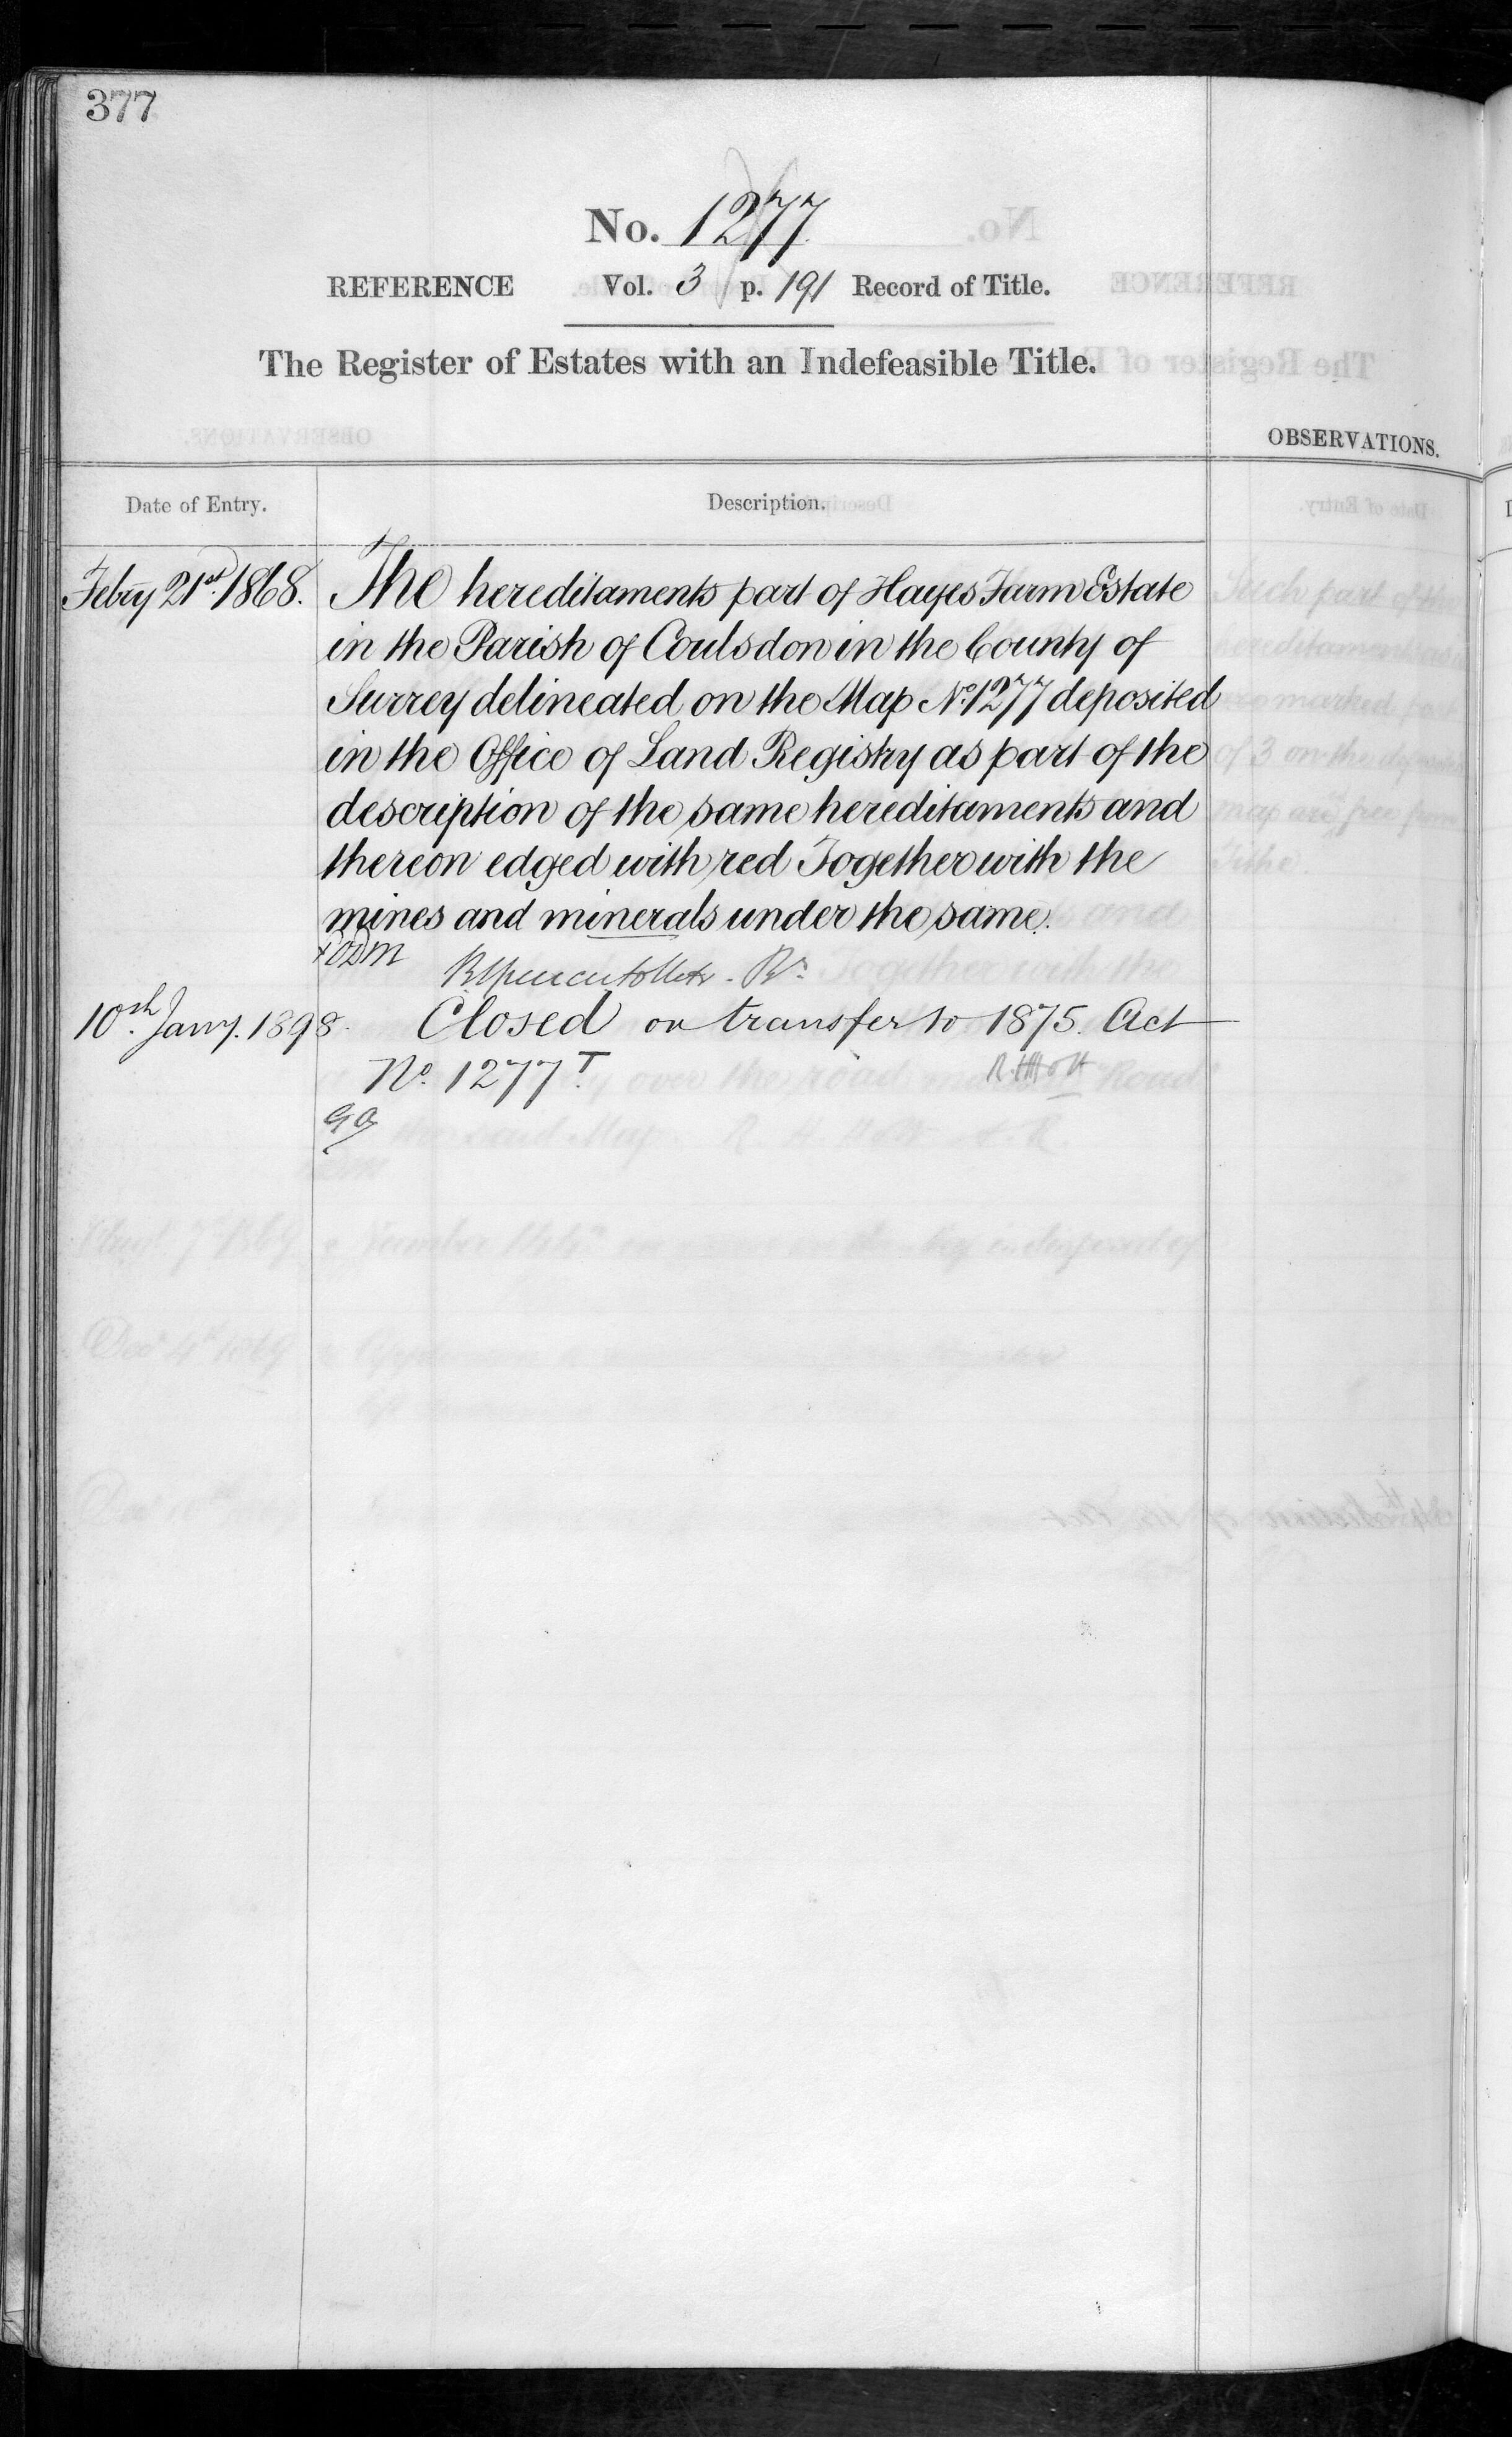 377
No. 1277
REFERENCE Vol. 3 p. 191 Record of Title.
The Register of Estates with an Indefeasible Title.
OBSERVATIONS.
Date of Entry. Description.
Febry 21st. 1868. The hereditaments part of Hayes Farm Estate
in the Parish of Coulsdon in the County of
Surrey delineated on the Map No. 1277 deposited
in the Office of Land Registry as part of the
description of the same hereditaments and
thereon edged with red Together with the
mines and minerals under the same.
10th. Jany. 1898. Closed on transfer to 1875. Act
No. 1277T.